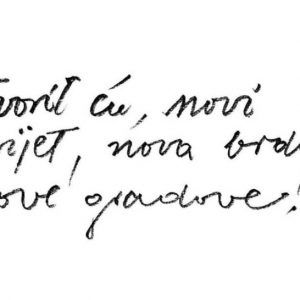 voril ću, novi
vijet, nova brd
ove gradove!